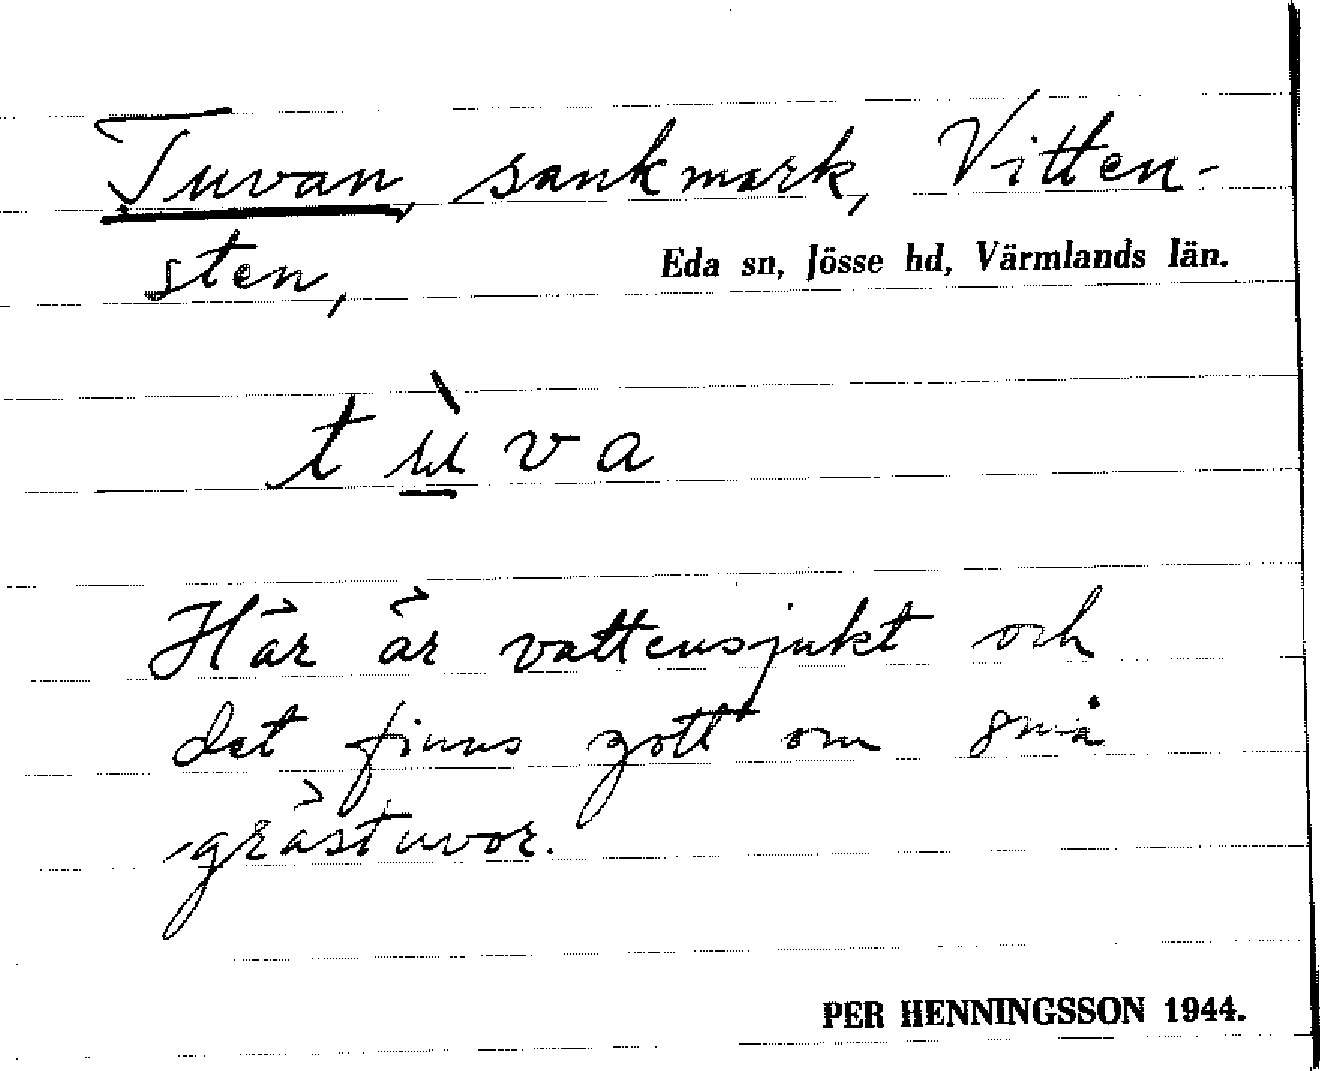 Tuvan, sankmark, Vitten-
sten,
Eda sn, Jösse hd, Värmlands län.
tù̲va
Här är vattensjukt och
det finns gott om små
grästuvor.
PER HENNINGSSON 1944.